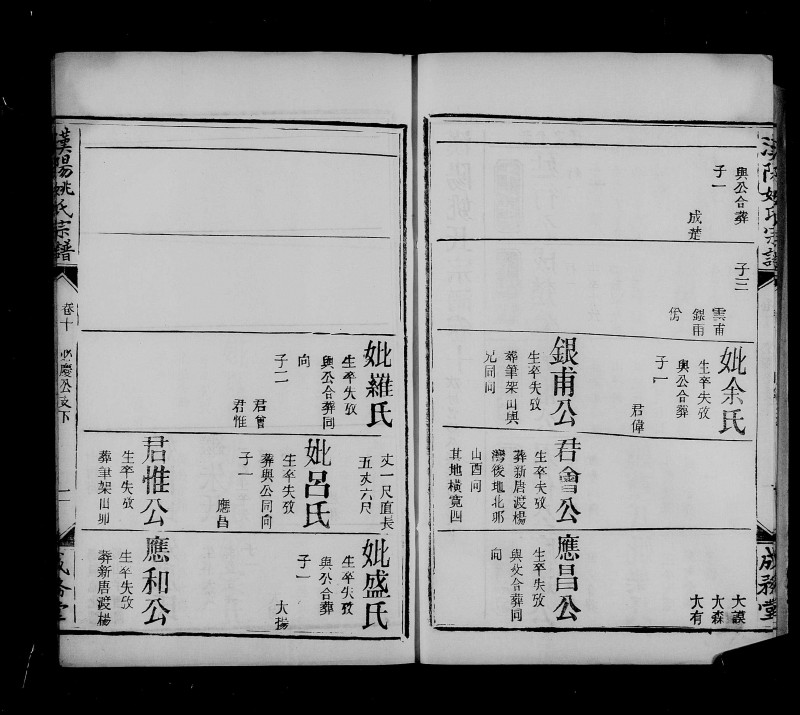 與公合葬
子一
成楚
子三
雲甫
銀甫
妣余氏
生卒失攷
與公合葬
子一
君偉
銀甫公
生卒失攷
葬筆架山與
兄同向
君會公
生卒失攷
葬新唐渡楊
灣後地北卯
山酉向
其地橫寬四
大謨
大森
大有
應昌公
生卒失攷
與父合葬同
向
妣羅氏
生卒失攷
與公合葬同
向
子二
君會
君惟
丈一尺直長
五丈六尺
妣呂氏
生卒失攷
葬與公同向
子一
應昌
君惟公
生卒失攷
葬筆架山卯
妣盛氏
生卒失攷
與公合葬
子一
大揚
應和公
生卒失攷
葬新唐渡楊
漢陽姚氏宗譜
卷十
慶公支下
成務堂